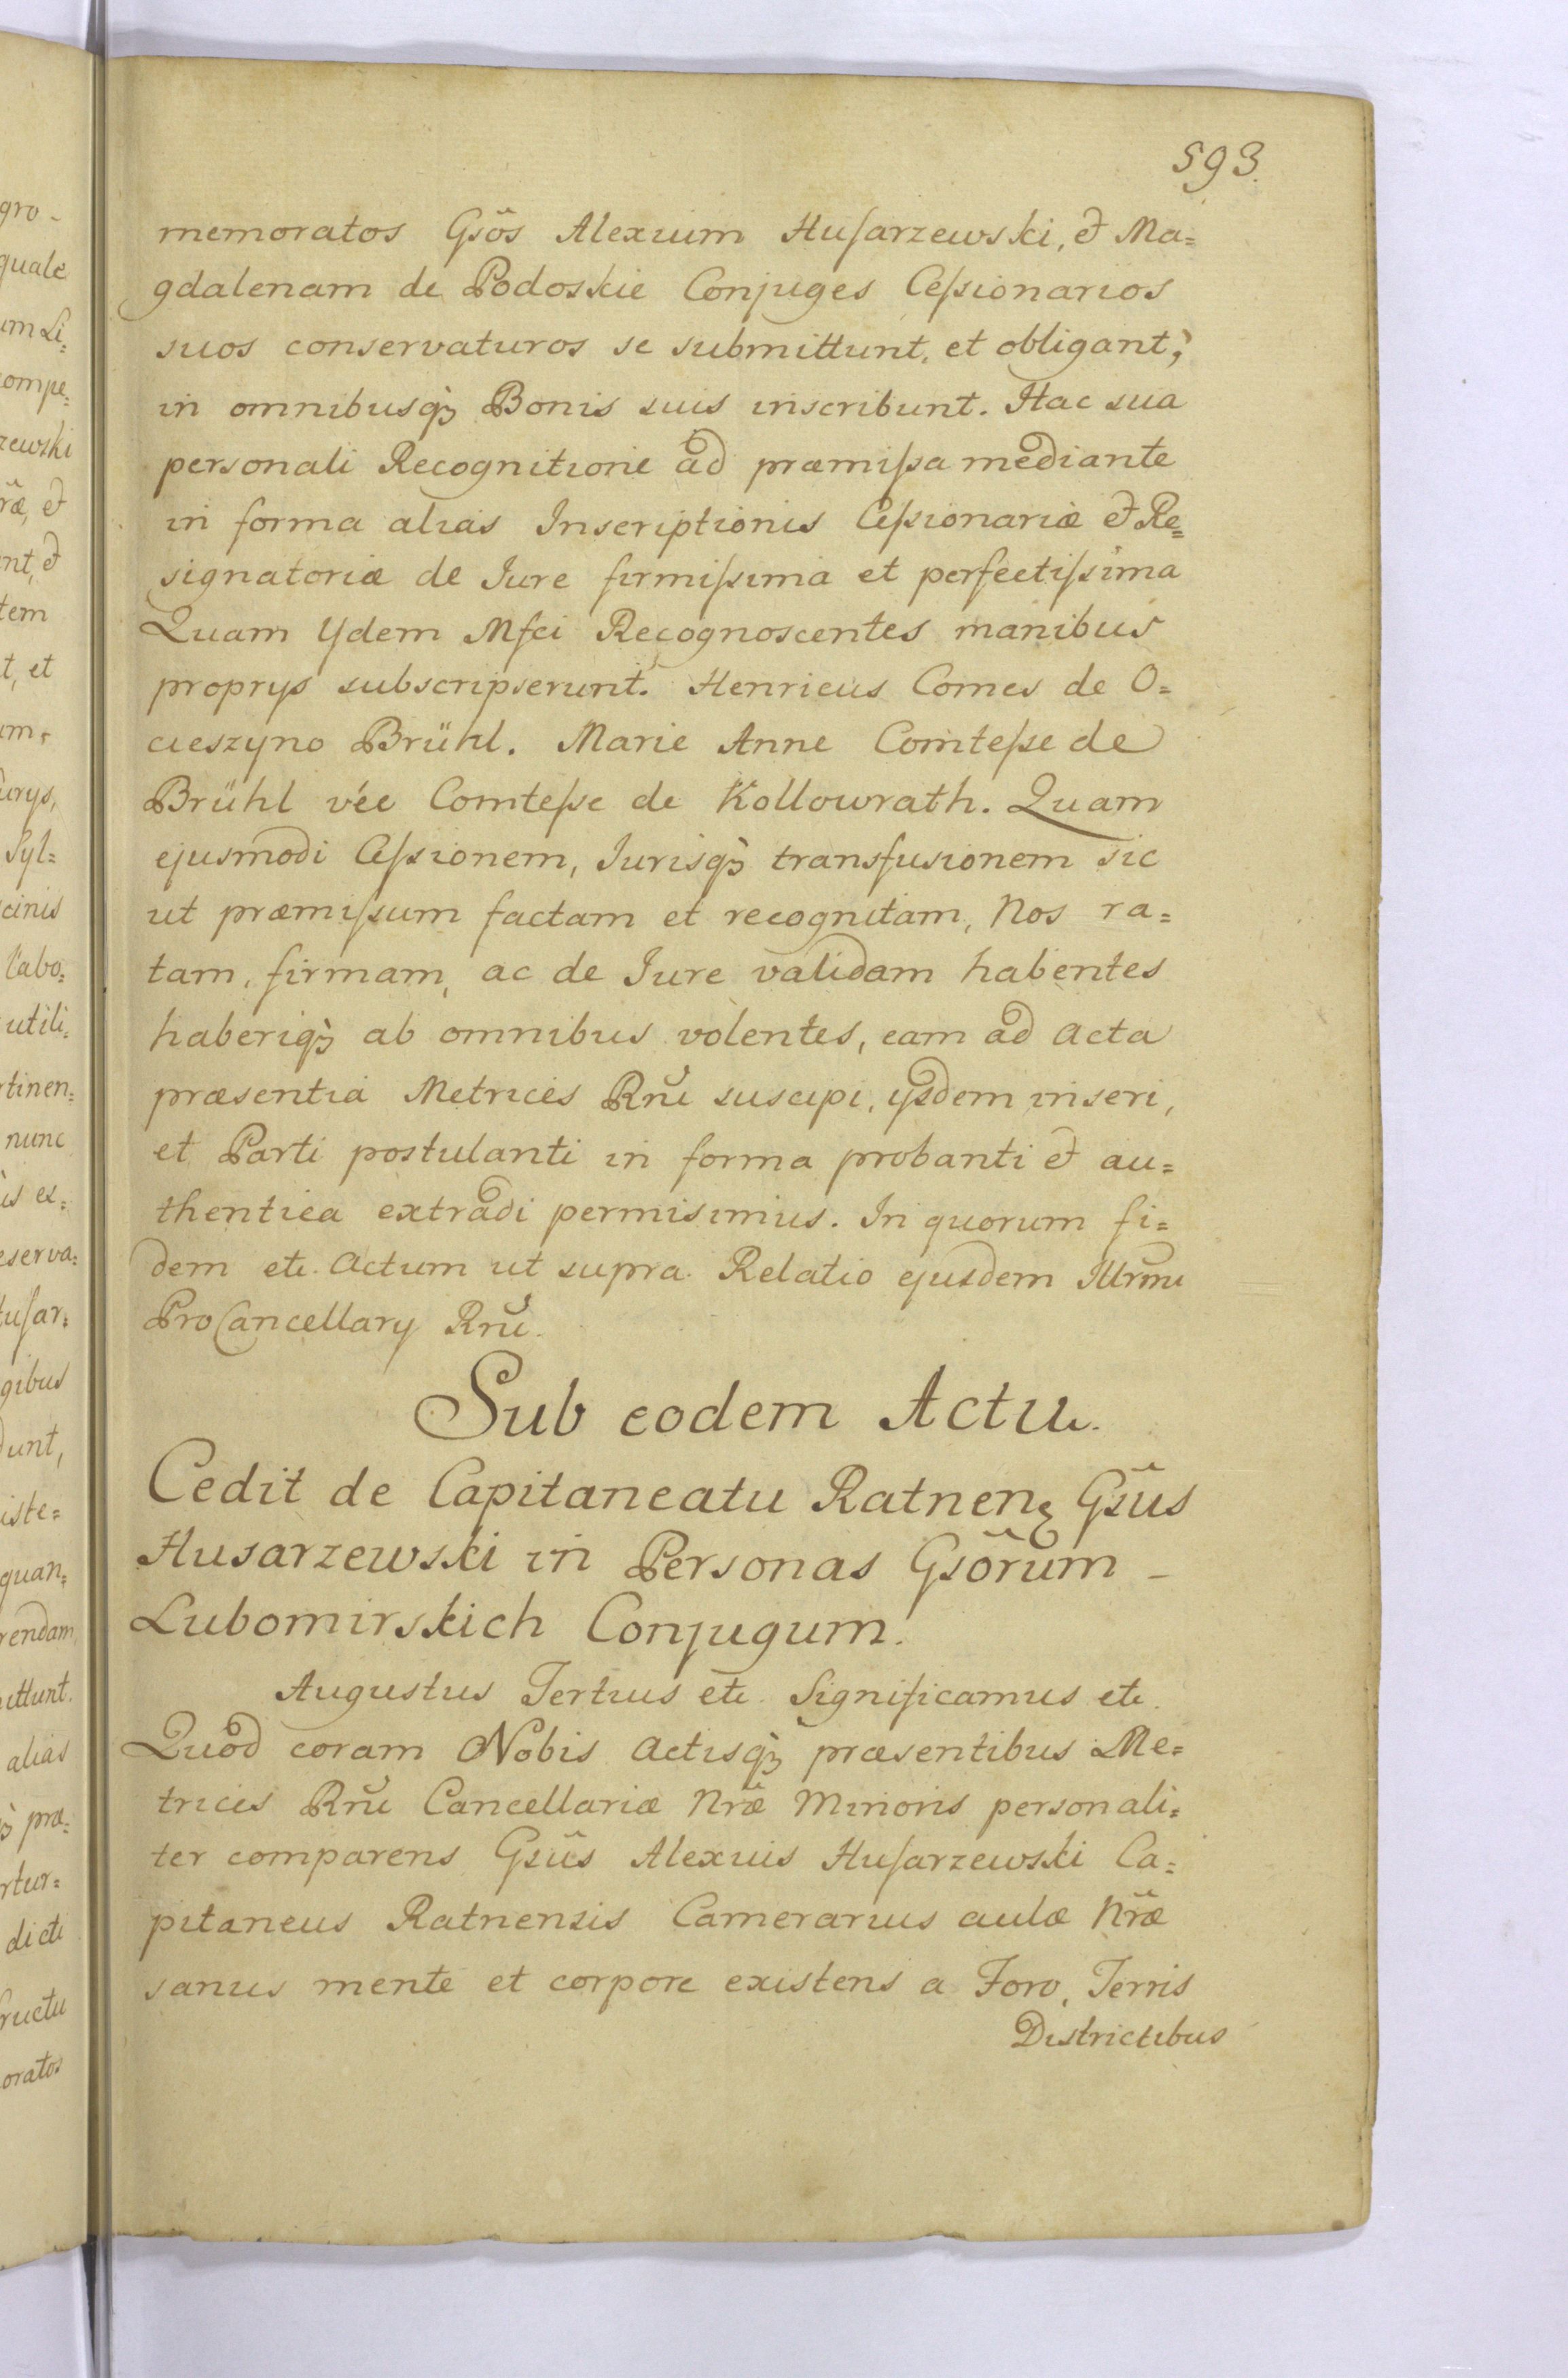 593.
memoratos Gsõs Alexium Husarzewski, et Ma=
gdalenam de Podoskie Conjuges Cessionarios
suos conservaturos se submittunt, et obligant,
in omnibusq̀ꝫ Bonis suis inscribunt. Hac sua
personali Recognitione ad præmissa mediante
in forma alias Inscriptionis Cessionariæ et Re=
signatoriæ de Jure firmissima et perfectissima
Quam Ydem Mfci Recognoscentes manibus
proprys subscripserunt. Henricus Comes de O=
cieszyno Brühl. Marie Anne Comtesse de
Brühl née Comtesse de Kollowrath. Quam
ejusmodi Cessionem, Jurisq̀ꝫ transfusionem sic
ut præmissum factam et recognitam, Nos ra=
tam, firmam, ac de Jure validam habentes
haberiq̀ꝫ ab omnibus volentes, eam ad Acta
præsentia Metrices Rnĩ suscipi, ysdem inseri,
et Parti postulanti in forma probanti et au=
thentica extradi permisimus. In quorum fi=
dem etc. Actum ut supra. Relatio ejusdem Illrmi
ProCancellary Rnĩ.
Sub eodem Actu.
Cedit de Capitaneatu Ratnenꝫ Gsũs
Husarzewski in Personas Gsõrum
Lubomirskich Conjugum.
Augustus Tertius etc. Significamus etc.
Quod coram Nobis Actisq̀ꝫ præsentibus Me=
trices Rnĩ Cancellariæ Nræ̃ Minoris personali=
ter comparens Gsũs Alexius Husarzewski Ca=
pitaneus Ratnensis Camerarius aulæ Nræ̃
sanus mente et corpore existens a Foro, Terris
Districtibus
gro-
quale
um Li=
compe=
zewski
ræ̃, et
nt, et
tem
t, et
um,
urys,
Syl=
cinis
labo=
utili=
rtinen=
nunc
is ex=
eserva=
usar=
gibus
dunt,
iste=
quan=
rendam
ittunt.
alias
præ=
rtur=
dicti
fructu
oratos